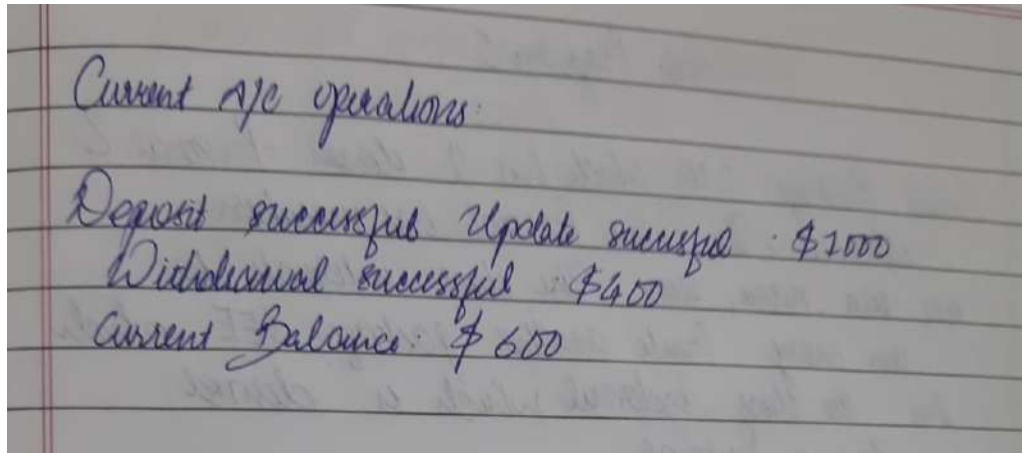 Current A/C operations:
Deposit successful Update successful : $1000
Withdrawal successful : $400
Current Balance: $600